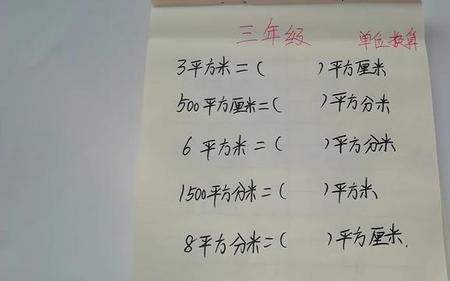 三年级 单位换算
3平方米=( )平方厘米
500平方厘米=( )平方分米
6平方米=( )平方分米
1500平方分米=( )平方米
8平方分米=( )平方厘米.